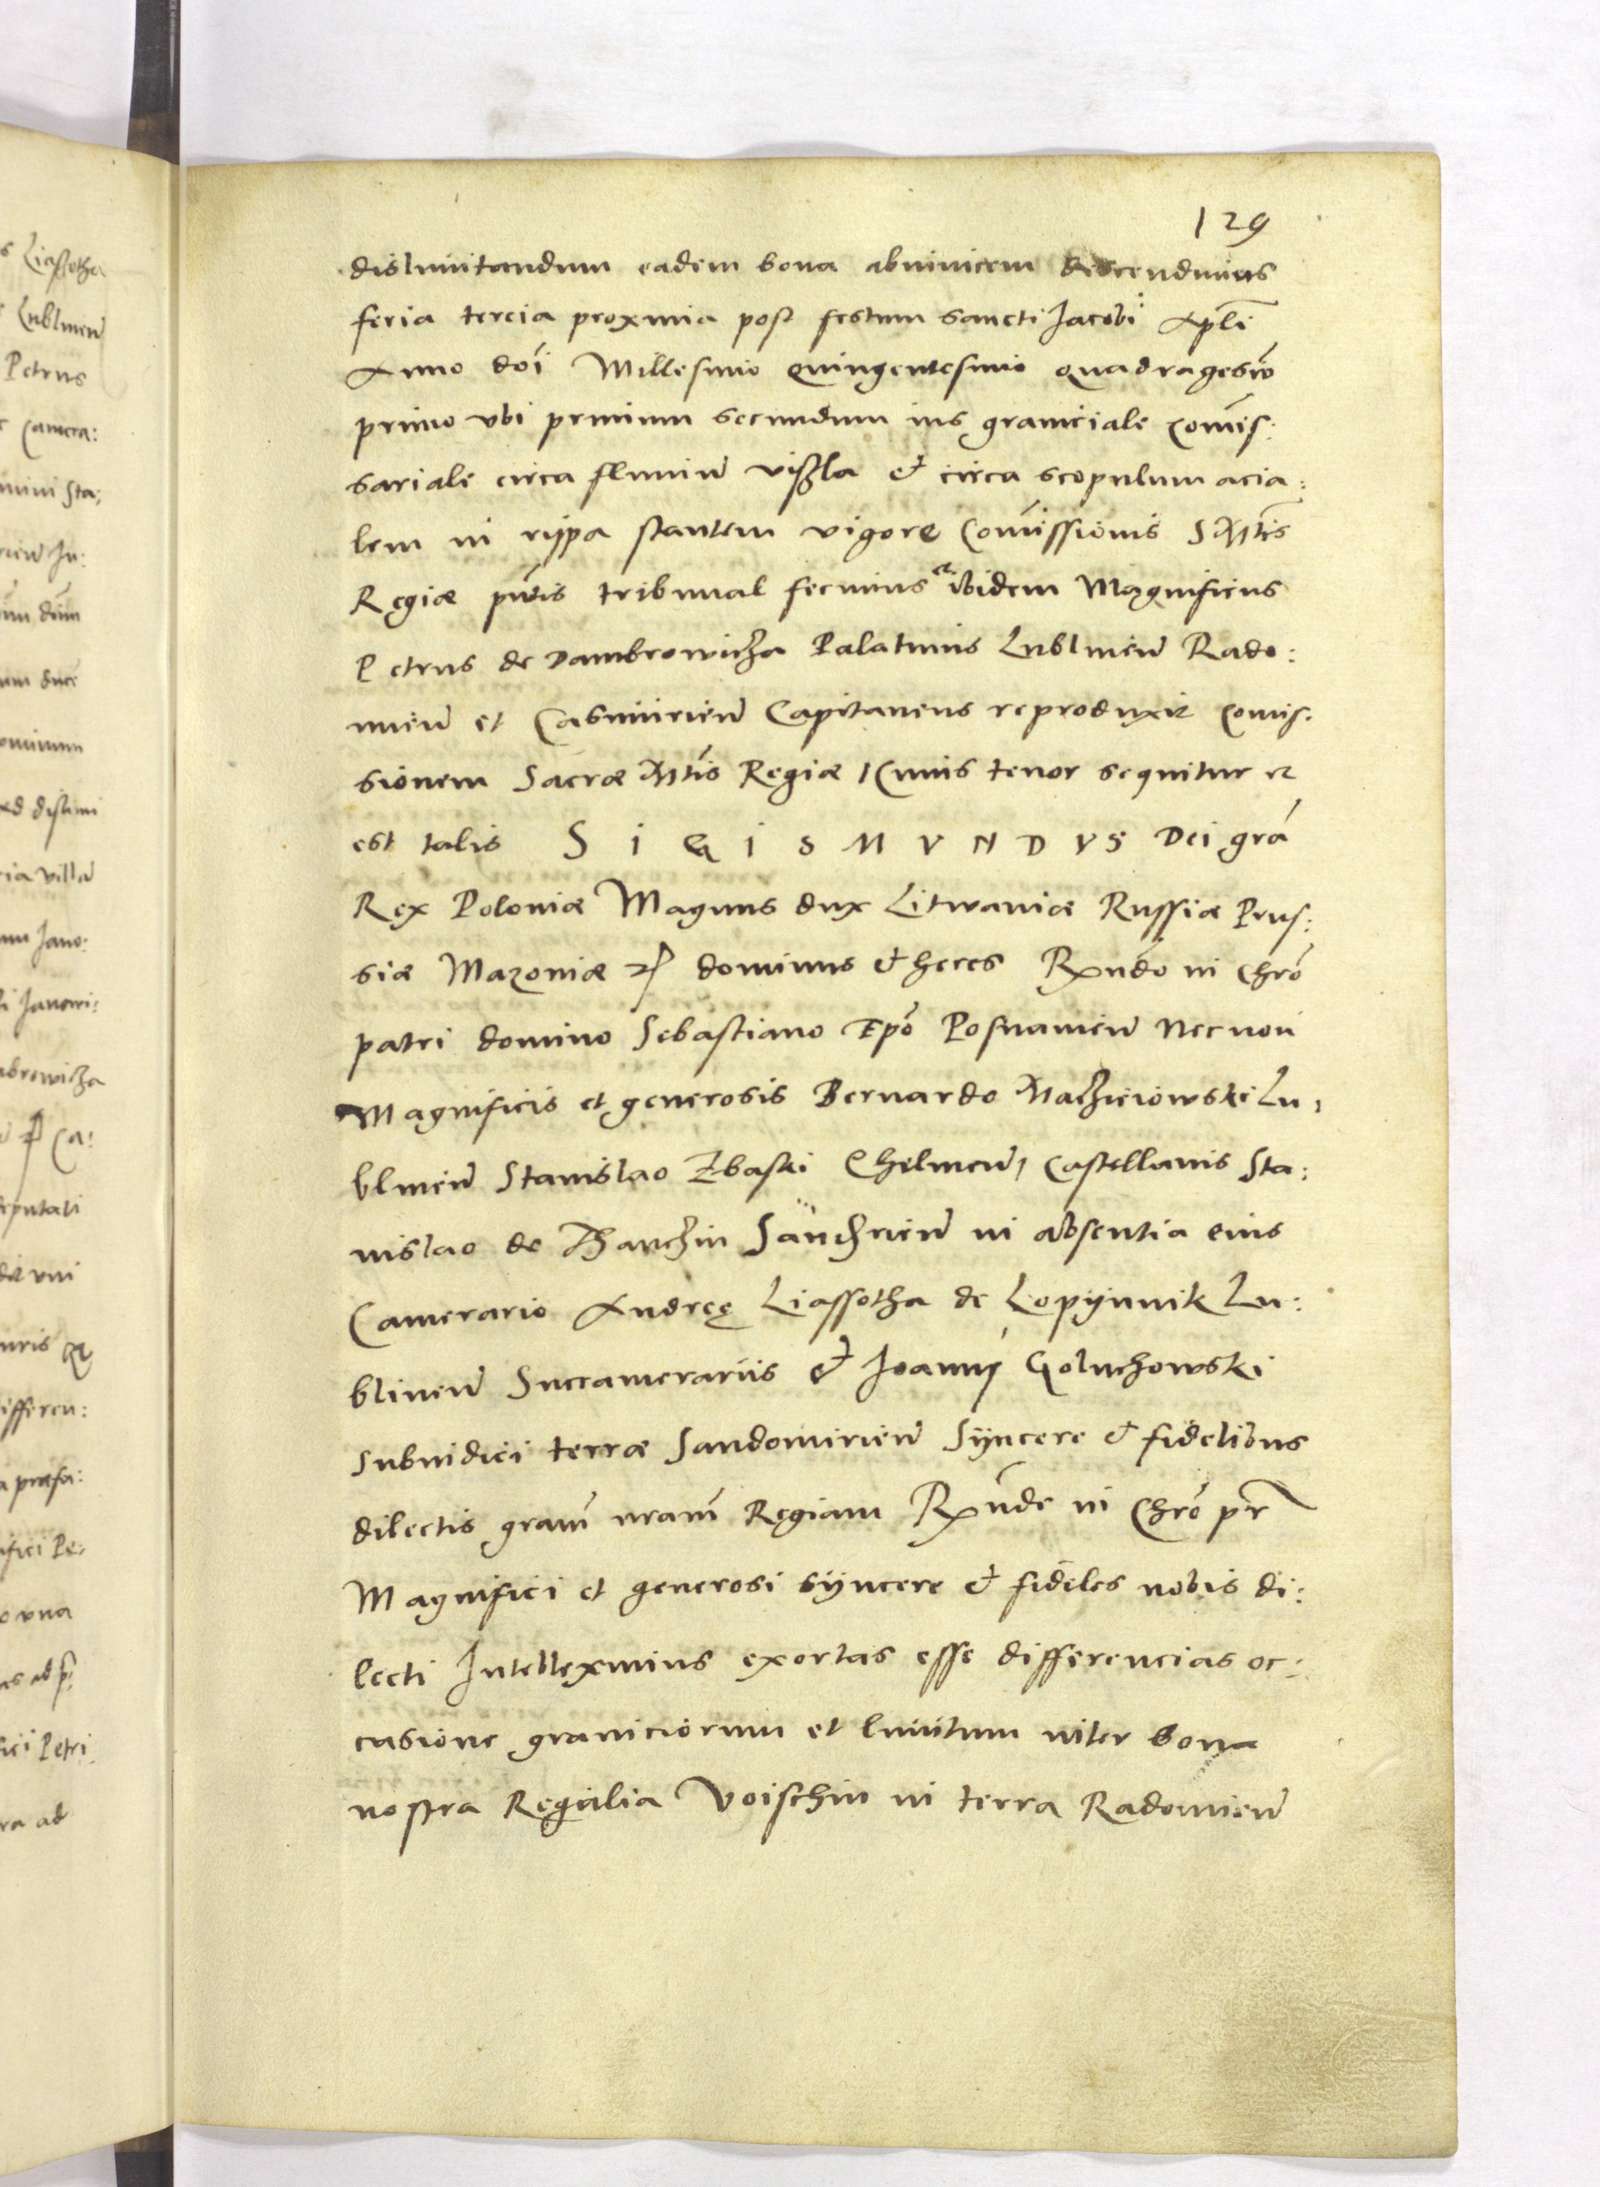 129
dislimitandum eadem bona abinvicem descendimus
feria tercia proxima post festum sancti Jacobi Apli
Anno doi Millesimo quingentesimo quadragesio
primo vbi primum secundum ius graniciale comis:
sariale circa fluuiu vißla & circa scopulum acia:
lem in rijpa stantem vigore comissionis S Mtis
Regiæ pntis tribunal fecimus et ibidem Magnificus
Petrus de Dambrowicza Palatinus Lublinen Rado:
mien et Casimirien Capitaneus reproduxit comis:
sionem Sacræ Mtis Regiæ Cuius tenor sequitur et
est talis S I G I S M V N D V S Dei gra
Rex Poloniæ Magnus dux Litwaniæ Russiæ Prus:
siæ Mazoniæ etc dominus & heres Rndo in Chro
patri domino Sebastiano Epo Posnanien Necnon
Magnificis et generosis Bernardo Macziciowski Lu:
blinen Stanislao Zbaski Chelmen, Castellanis Sta:
nislao de Thanczin Sandrien in absentia eius
Camerario Andreę Liassotha de Lopijennik Lu:
blinen Succamerariis & Joanni Goluchowski
subiudici terræ Sandomirien Sijncere & fidelibus
dilectis gram nram Regiam Rnde in Chro pr
Magnifici et generosi sijncere & fideles nobis di:
lecti Intelleximus exortas esse differencias oc:
casione graniciorum et limitum inter bona
nostra Regalia Voischin in terra Radomien